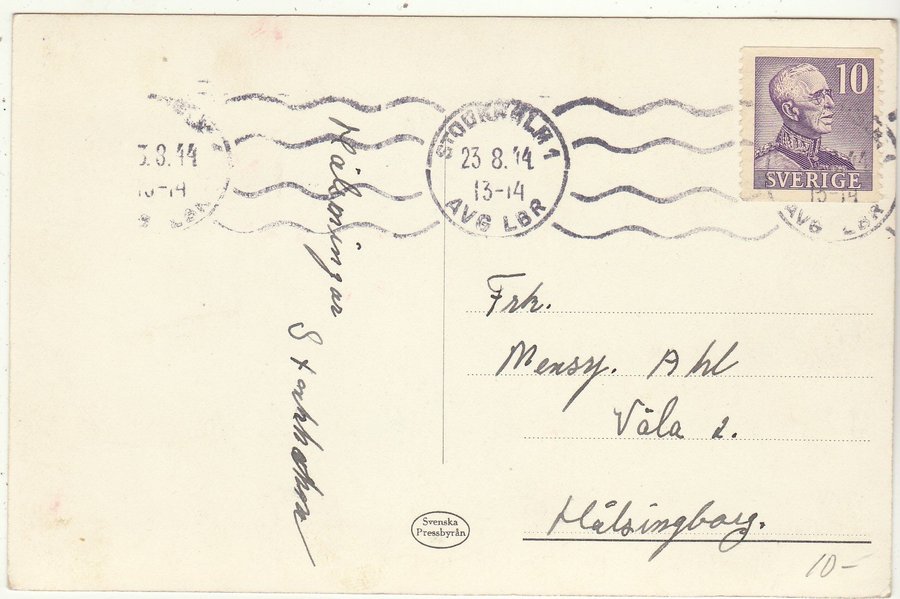 STOCKHOLM 1
23 8.44
13-14
AVG LBR
3.8.44
13-14
G LBR
10
SVERIGE
44
13-14
AVG LBR
Hälsningar Stockholm
Frk.
Mensy. Ahl
Väla 2.
Hälsingborg.
Svenska
Pressbyrån
10-